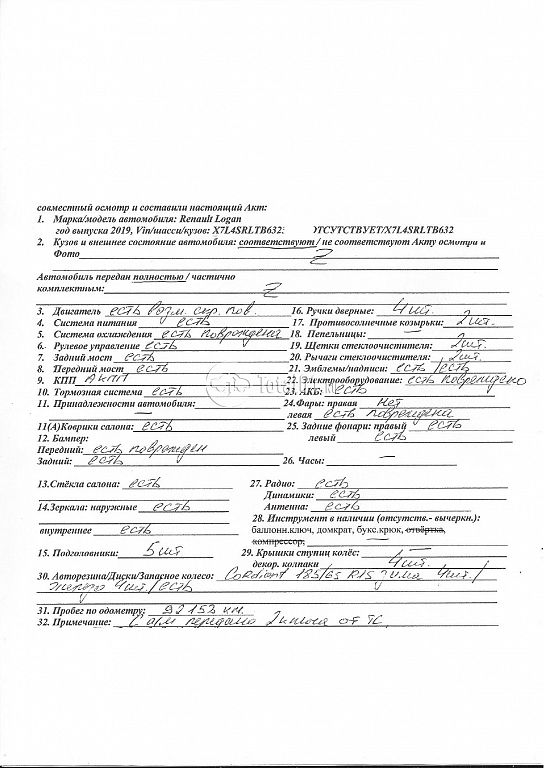 совместный осмотр и составили настоящий Акт:
1. Марка/модель автомобиля: Renault Logan
год выпуска 2019, Vin/шасси/кузов: X7L4SRLTB632 ОТСУТСТВУЕТ/X7L4SRLTB632
2. Кузов и внешнее состояние автомобиля: соответствуют / не соответствуют Акту осмотра и
Фото
Автомобиль передан полностью / частично
комплектным:
3. Двигатель есть 16. Ручки дверные: 4 шт.
4. Система питания есть 17. Противосолнечные козырьки: 2 шт.
5. Система охлаждения есть повреждена 18. Пепельницы: —
6. Рулевое управление есть 19. Щетки стеклоочистителя: 2 шт.
7. Задний мост есть 20. Рычаги стеклоочистителя: 2 шт.
8. Передний мост есть 21. Эмблемы/надписи: есть / есть
9. КПП АКПП 22. Электрооборудование: есть повреждено
10. Тормозная система есть 23. АКБ: есть
11. Принадлежности автомобиля: — 24. Фары: правая нет
левая есть повреждена
11(А) Коврики салона: есть 25. Задние фонари: правый есть
12. Бампер: левый есть
Передний: есть поврежден
Задний: есть 26. Часы: —
13. Стёкла салона: есть 27. Радио: есть
Динамики: есть
14. Зеркала: наружные есть Антенна: есть
28. Инструмент в наличии (отсутств.- вычеркн.):
внутреннее есть баллонн.ключ, домкрат, букс.крюк, отвёртка,
компрессор,
15. Подголовники: 5 шт 29. Крышки ступиц колёс: —
декор. колпаки 4 шт.
30. Авторезина/Диски/Запасное колесо: Cordiant 185/65 R15 зима 4 шт. /
железо 4 шт / есть
31. Пробег по одометру: 92 152 км.
32. Примечание: С а/м передано 2 ключа от ТС